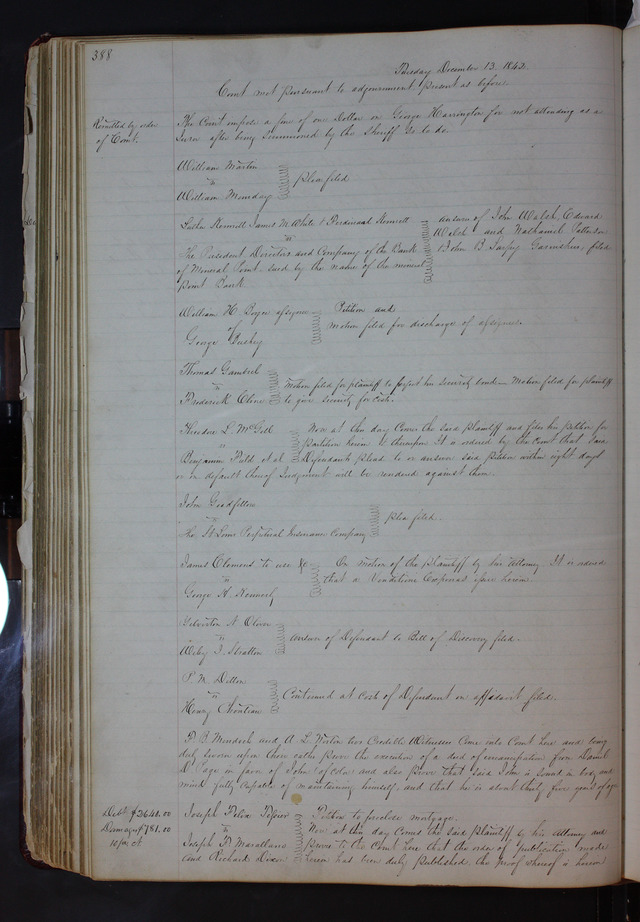 388
Tuesday December 13. 1842.
Court met pursuant to adjournment present as before.
Remitted by order
of Court.
The Court impose a fine of one Dollar on George Harrington for not attending as a
Juror after being summoned by the Sheriff so to do.
William Martin
vs
William Munday
plea filed
Luther Kennett James M. White & Ferdinand Kennett
vs
The President Directors and Company of the Bank
of Mineral Point. sued by the name of the mineral
point Bank.
answer of John Walsh, Edward
Walsh and Nathaniel Patterson
John B. Sarpy Garnishees, filed
William H. Boyce assignee
of
George
Petition and
motion filed for discharge of assignee.
Thomas Gambrel
vs
Frederick Cline
Motion filed for plaintiff to his security bond— Motion filed for plaintiff
to give security for costs.
Theodore L. McGill
vs
Benjamin Field et al
Now at this day Comes the said Plaintiff and files his petition for
Partition herein & thereupon It is ordered by the Court that said
Defendants plead to or answer said Petition within eight days
or in default thereof Judgment will be rendered against them.
John Goodfellow
vs
The St Louis Perpetual Insurance Company
plea filed.
James Clemens to use &c
vs
George H. Kennerly
On motion of the plaintiff by his Attorney. It is ordered
that a Venditioni Exponas issue herein.
Silvester N. Oliver
vs
J. Stratton
answer of Defendant to Bill of Discovery filed.
P. M. Dillon
vs
Henry Christian
Continued at cost of Defendant on affidavit filed.
P. B. Murdoch and A. L. two Credible Witnesses Come into Court here and being
duly sworn upon their oaths prove the execution of a deed of emancipation from Daniel
D. Page in favor of John of color and also prove that said John is sound in body and
mind fully Capable of maintaining himself, and that he is about thirty five years of age
Debt $3640.00
Damages $781.00
10 pr ct
Joseph
vs
Joseph
and Richard Dixon
Petition to foreclose mortgage.
Now at this day Comes the said Plaintiff by his Attorney and
proves to the Court here that the order of publication made
herein has been duly published, the proof whereof is herein